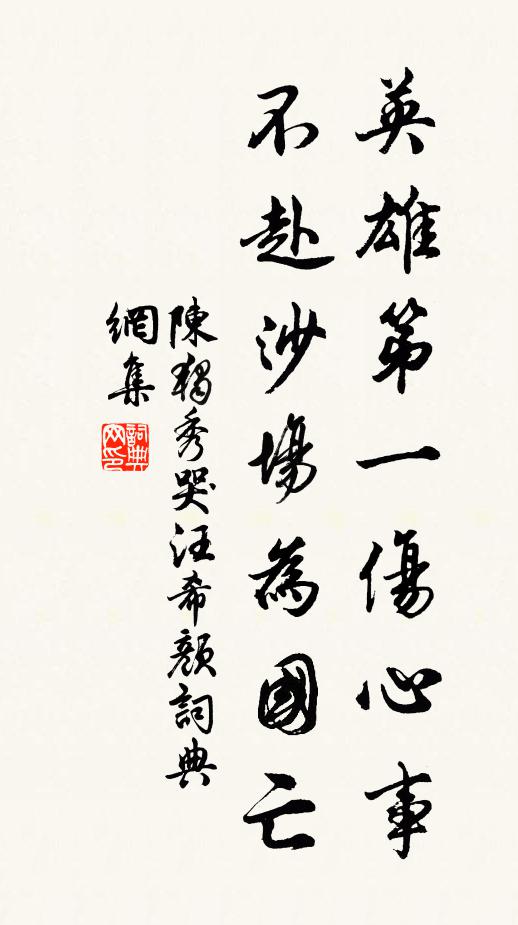 英雄第一傷心事
不赴沙場為國亡
陳獨秀哭汪希顏詞典
網集
詞典网印